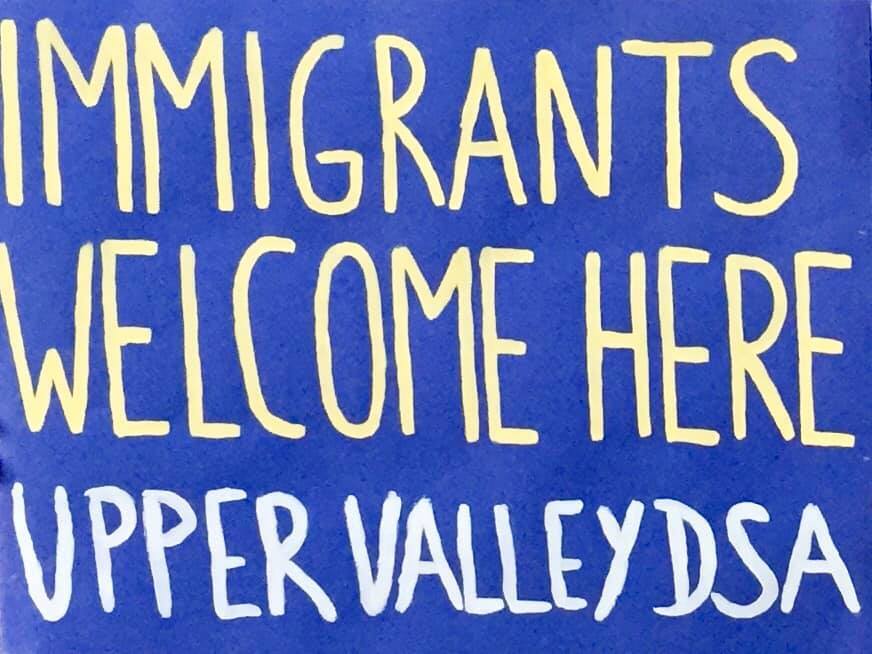 IMMIGRANTS
WELCOME HERE
UPPER VALLEY DSA